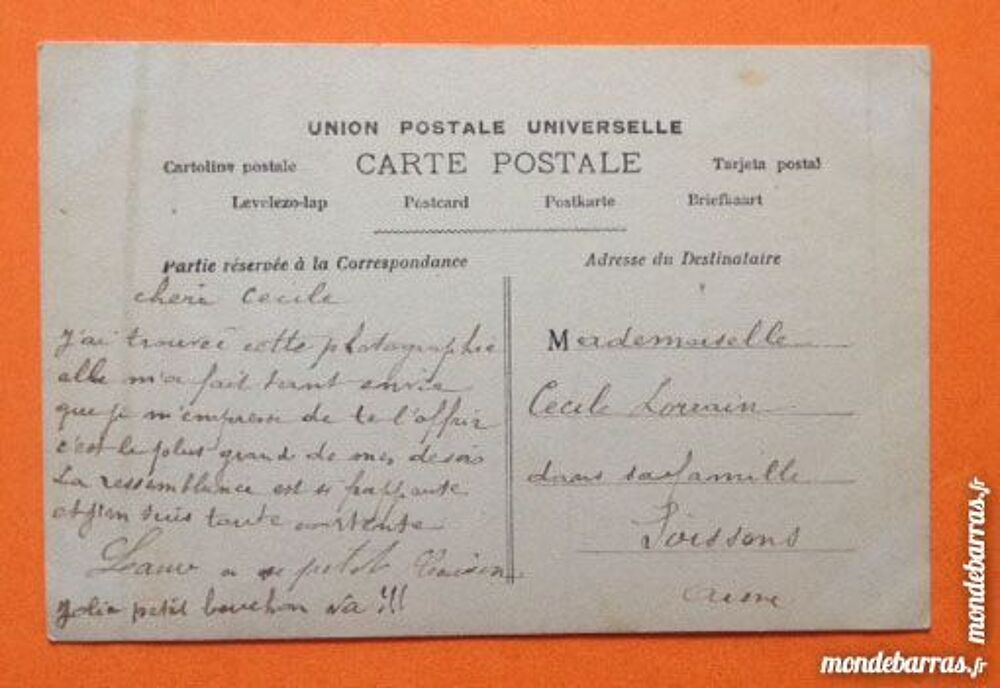 UNION POSTALE UNIVERSELLE
Cartolina postale CARTE POSTALE Tarjeta postal
Levelezo-lap Postcard Postkarte Briefkaart
Partie réservée à la Correspondance
cheri Cecile
J'ai trouvée cette photographie
elle m'a fait tant envie
que je m'empresse de te l'offrir
c'est le plus grand de mes desirs
La ressemblance est si frappante
et j'en suis toute contente
petit
Jolie petit bouchon va !!!
Adresse du Destinataire
Mademoiselle
Cecile Lorrain
dans sa famille
Soissons
Aisne
mondebarras.fr
mondebarras.fr